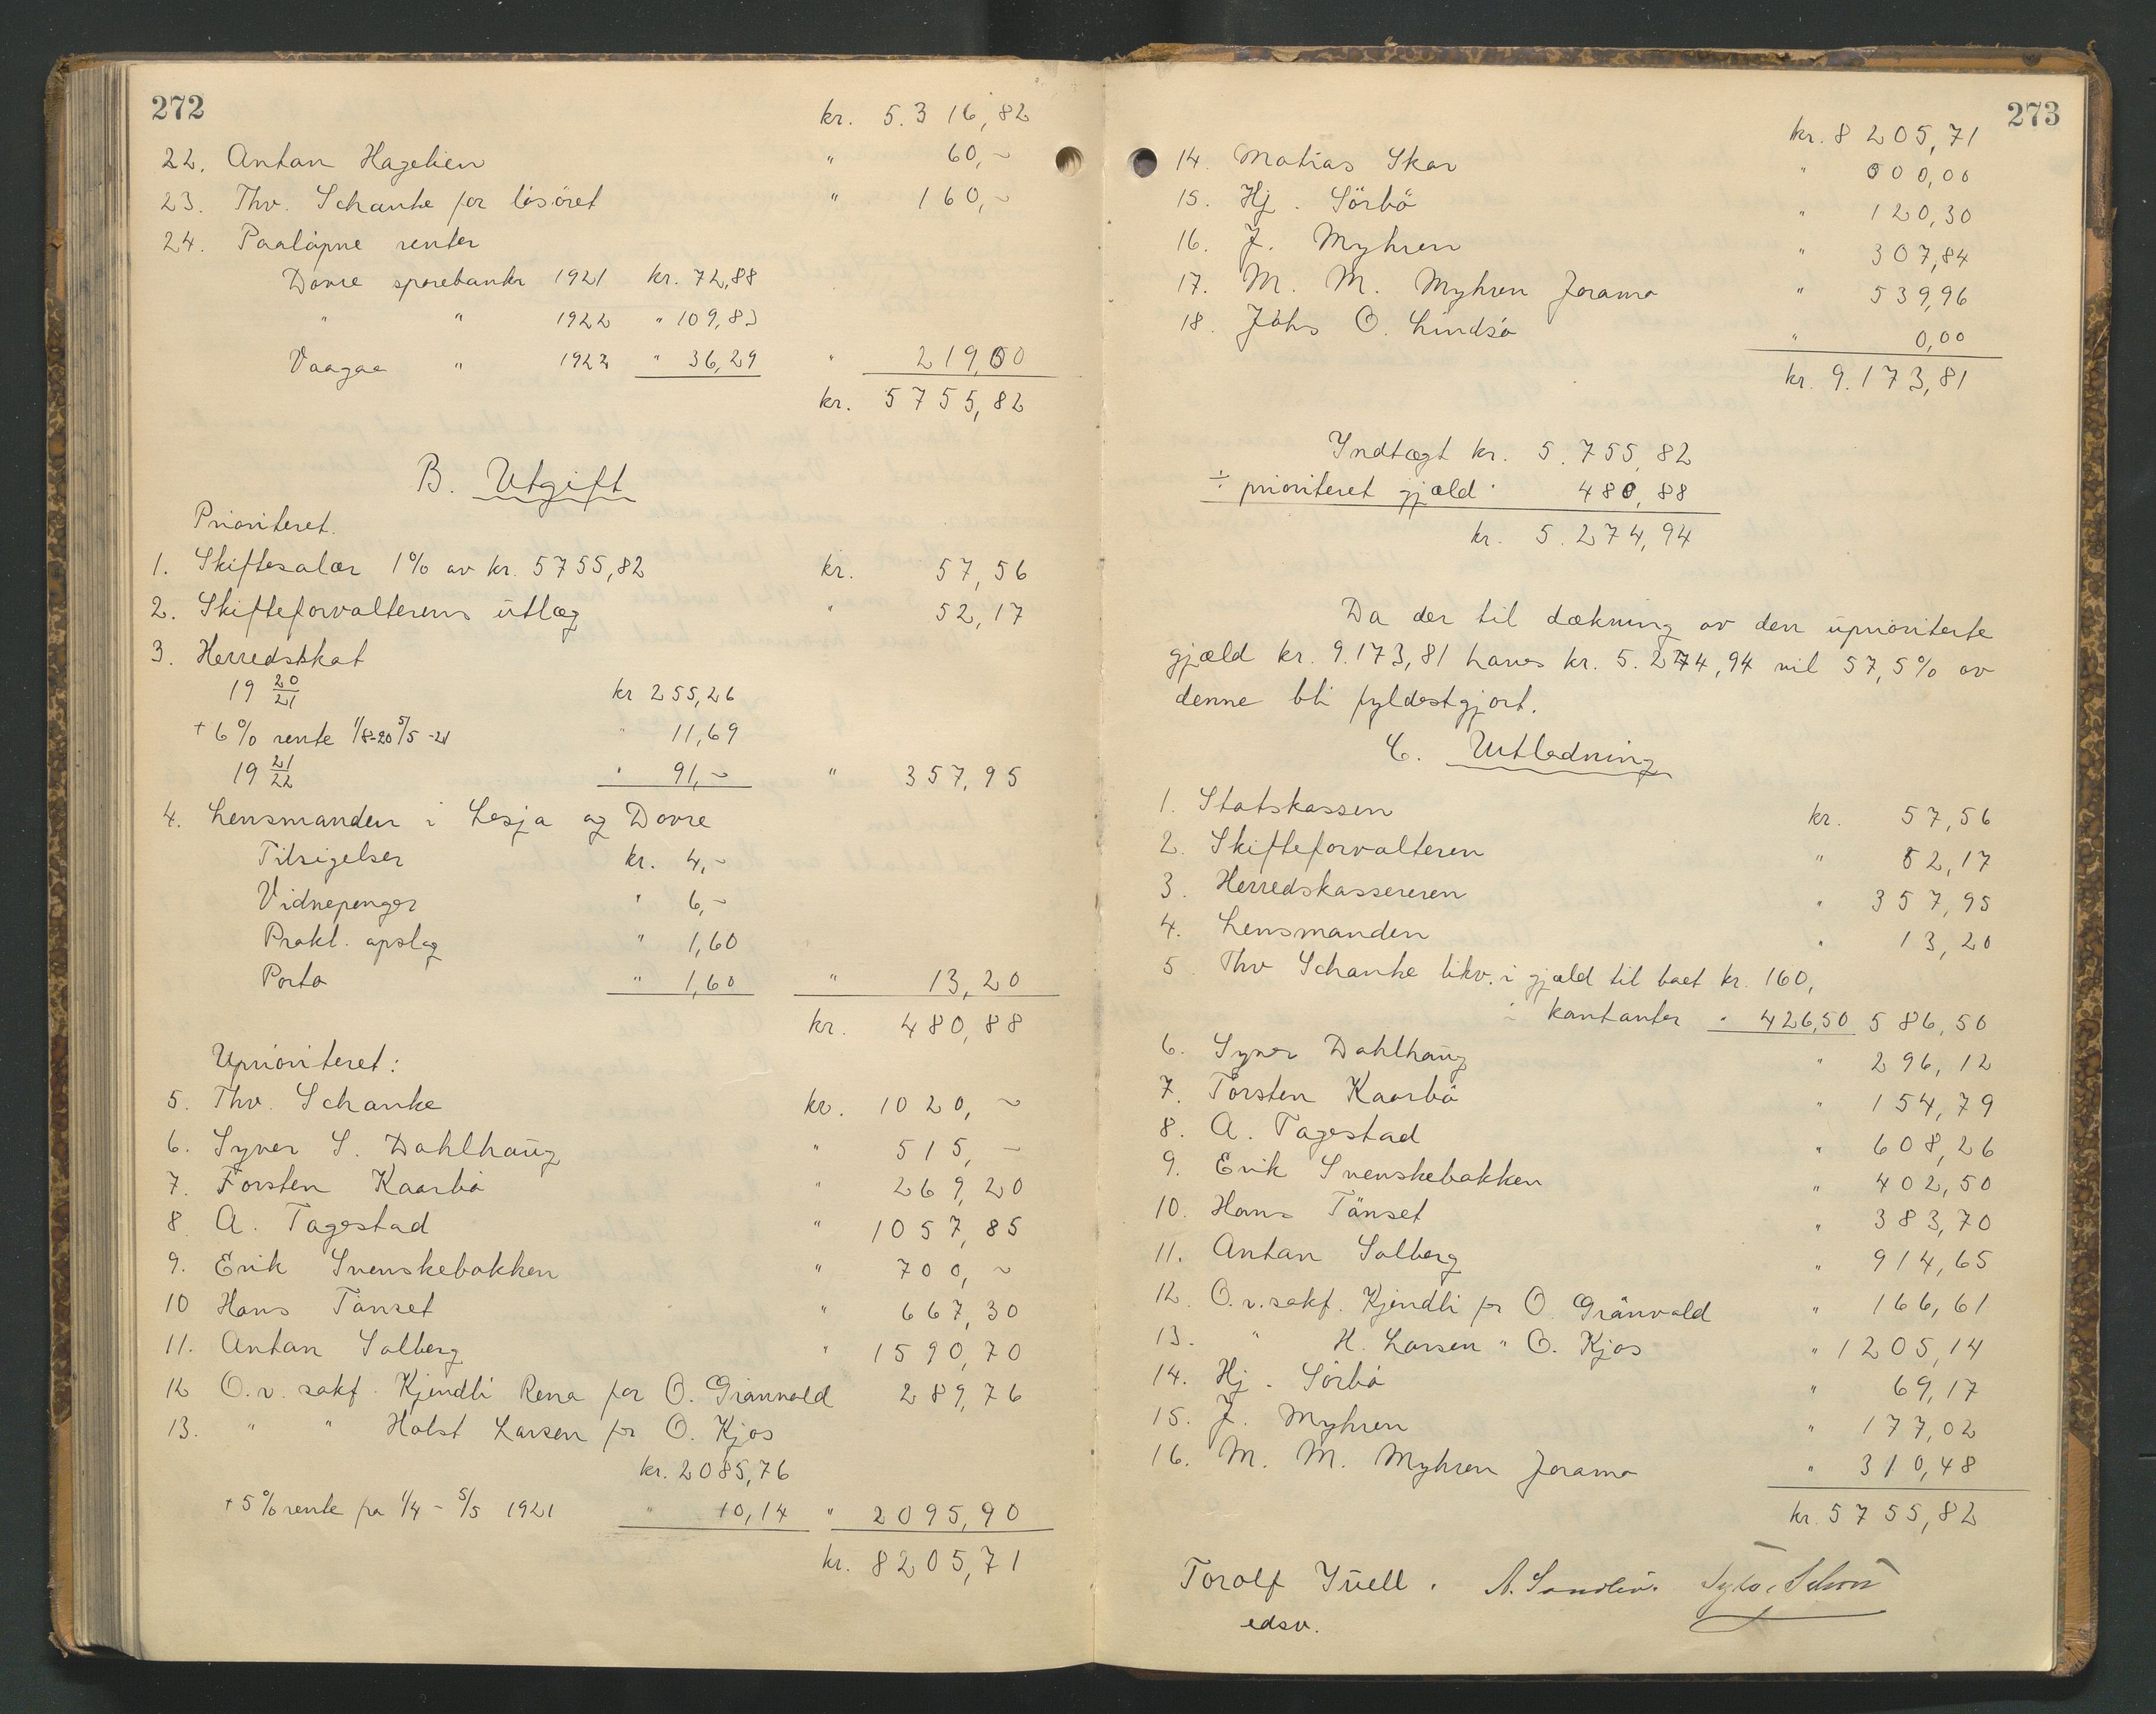 272
kr. 5.316,82
22. Anton Hagelien " 60,-
23. Thv. Schanke for lösöret " 160,-
24. Paaløpne renter
Dovre sparebanks 1921 kr. 72,88
" " 1922 " 109,83
Vaagaa " 1922 " 36,29 " 219,00
kr. 5755,82
B. Utgift
Prioriteret.
1. Skiftesalær 1% av kr. 5755,82 kr. 57,56
2. Skifteforvalterens utlæg " 52,17
3. Herredsskat
19 20/21 kr 255,26
+ 6% rente 1/8-20 5/5 -21 " 11,69
19 21/22 " 91,- " 357,95
4. Lensmanden i Lesja og Dovre
Tilsigelser kr. 4,-
Vidnepenger " 6,-
Prokl. opslag " 1,60
Porto " 1,60 " 13,20
kr. 480,88
Uprioriteret:
5. Thv. Schanke kr. 1020,-
6. Syver S. Dahlhaug " 515,-
7. Torsten Kaarbö " 269,20
8. A. Tagestad " 1057,85
9. Erik Svenskebakken " 700,-
10 Hans Tönset " 667,30
11. Anton Solberg " 1590,70
12 O.r. sakf. Kjendli Rena for O. Grönvold 289,76
13. " " Holst Larsen for O. Kjos
kr. 2085,76
+ 5% rente fra 1/4 - 5/5 1921 " 10,14 " 2095,90
kr. 8205,71
273
kr. 8205,71
14. Matias Skar " 000,00
15. Hj. Sörbö " 120,30
16. J. Myhren " 307,84
17. M. M. Myhren Joramo " 539,96
18. Johs O. Lindsö " 0,00
kr. 9.173,81
Indtægt kr. 5.755,82
÷ prioriteret gjæld " 480,88
kr. 5.274,94
Da der til dækning av den uprioriterte
gjæld kr. 9.173,81 haves kr. 5.274,94 vil 57,5% av
denne bli fyldestgjort.
C. Utlodning
1. Statskassen kr. 57,56
2. Skifteforvalteren " 52,17
3. Herredskassereren " 357,95
4. Lensmanden " 13,20
5 Thv Schanke likv. i gjæld til boet kr. 160,
i kontanter " 426,50 586,50
6. Syver Dahlhaug " 296,12
7. Torsten Kaarbö " 154,79
8. A. Tagestad " 608,26
9. Erik Svenskebakken " 402,50
10. Hans Tönset " 383,70
11. Anton Solberg " 914,65
12. O.r.sakf. Kjendli for O. Grönvold " 166,61
13. " H. Larsen " O. Kjos " 1205,14
14. Hj. Sörbö " 69,17
15. J. Myhren " 177,02
16. M. M. Myhren Joramo " 310,48
kr. 5755,82
Torolf Juell. A. Sandlie.
edsv.